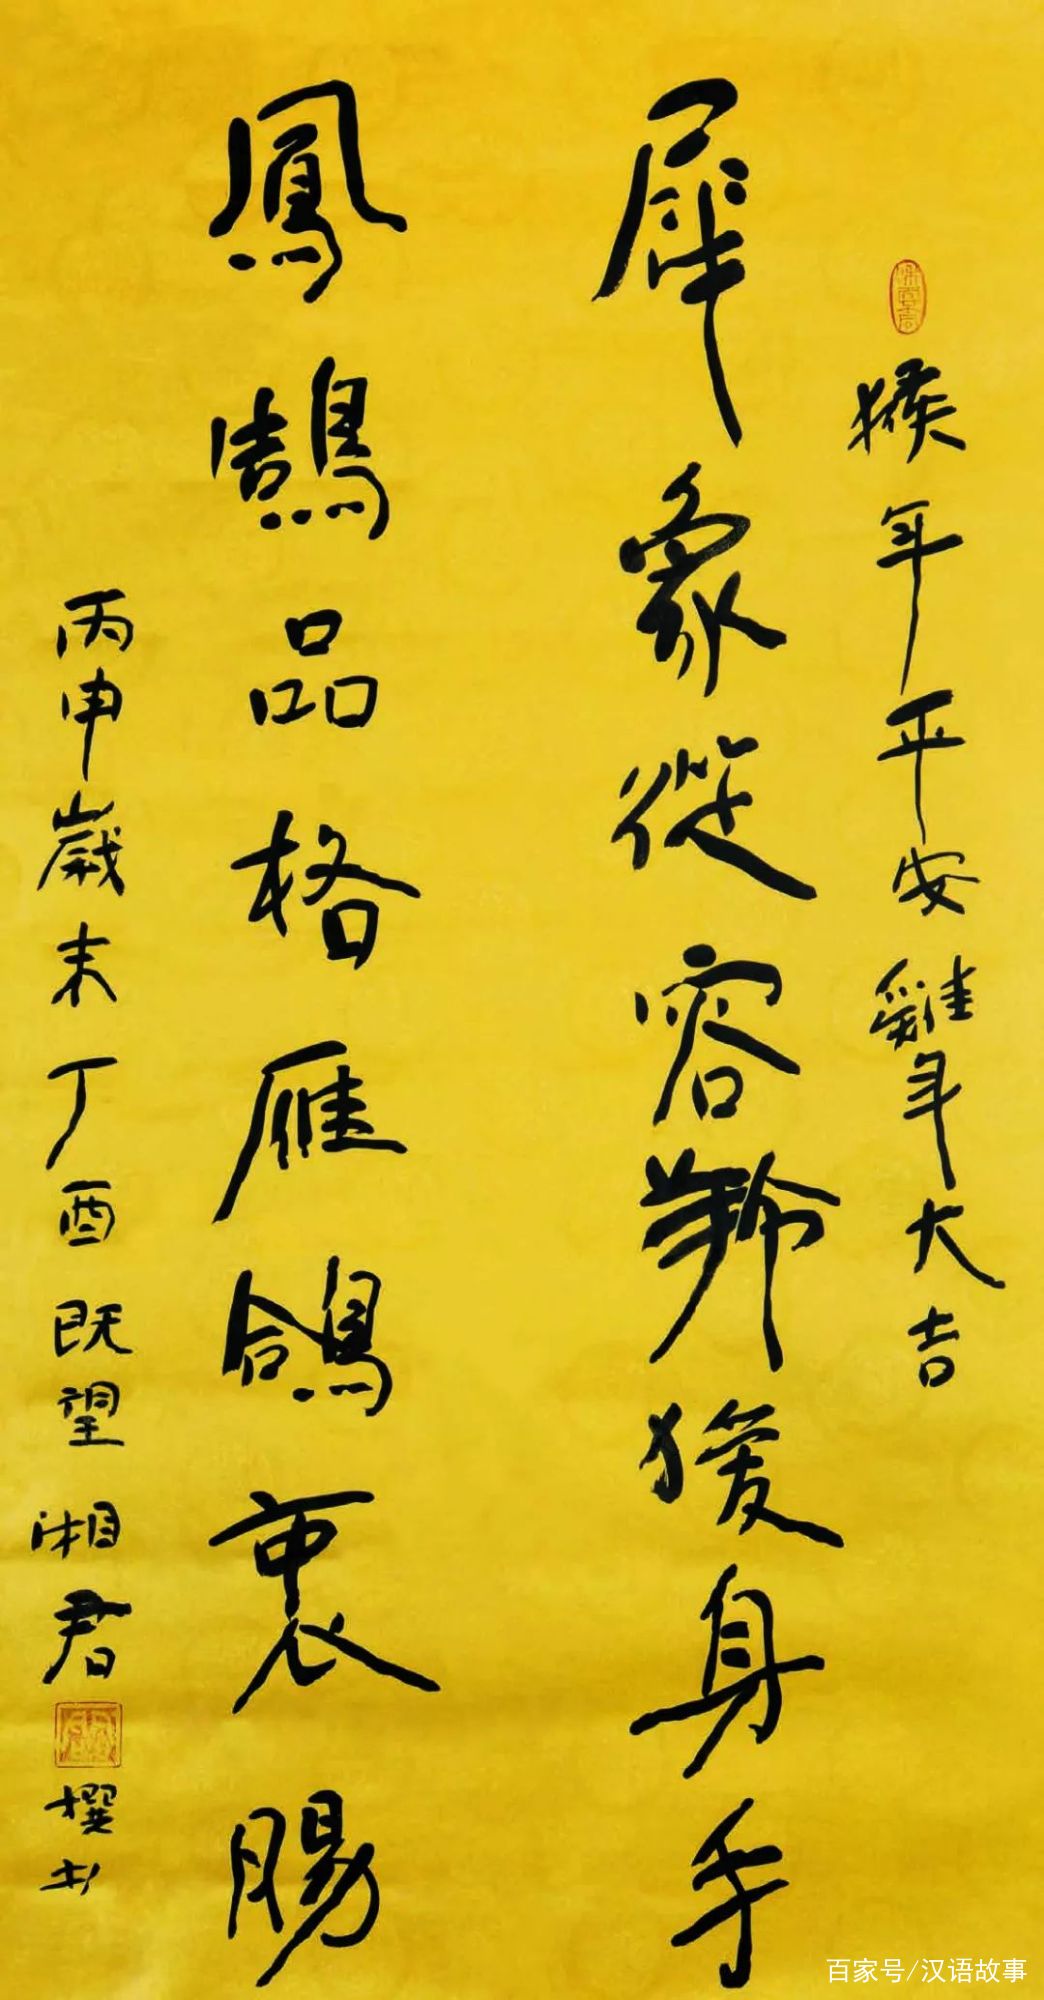 猴年平安雞年大吉
犀象從容羚猨身手
鳳鵠品格雁鴿衷腸
丙申歲末丁酉既望湘君撰书
百家号/汉语故事